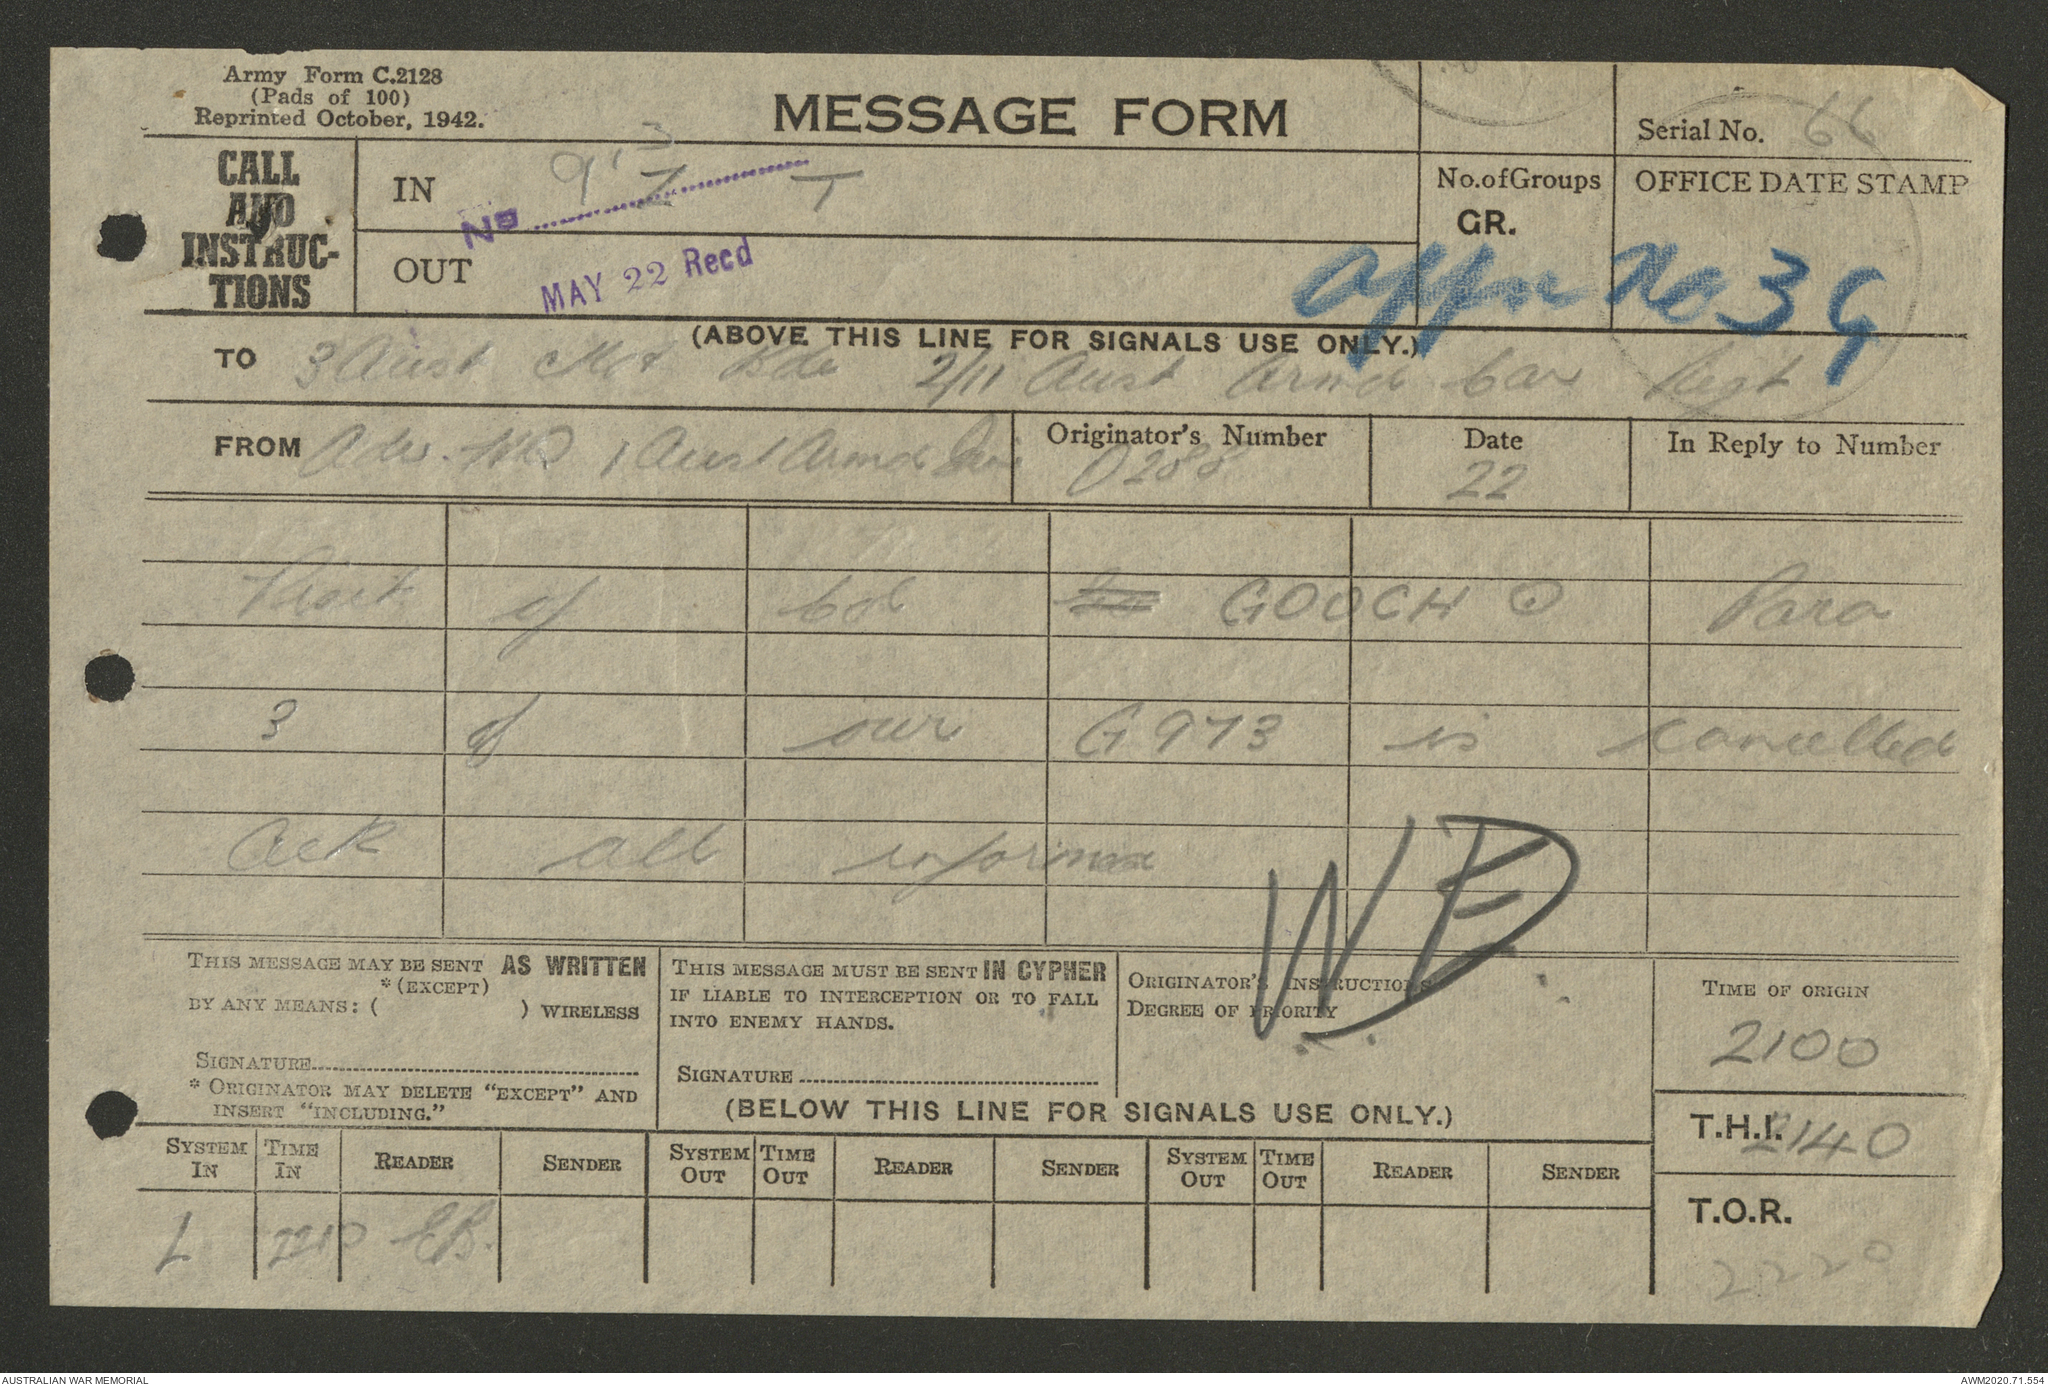 Army Form C.2128
(Pads of 100)
Reprinted October, 1942.
MESSAGE FORM
Serial No. 66
CALL
AND
INSTRUC-
TIONS
IN
No
OUT
MAY 22 Recd
No. of Groups
GR.
OFFICE DATE STAMP
Appx No 3 G
(ABOVE THIS LINE FOR SIGNALS USE ONLY.)
TO 3 Aust Mot Bde 2/11 Aust Armd Car Regt
FROM Adv. HQ 1 Aust Armd Div
Originator's Number
O288
Date
22
In Reply to Number
Visit of Col GOOCH O Para
3 of our G973 is cancelled
Ack all
WED
THIS MESSAGE MAY BE SENT AS WRITTEN
*(EXCEPT)
BY ANY MEANS: ( ) WIRELESS
SIGNATURE
* ORIGINATOR MAY DELETE "EXCEPT" AND
INSERT "INCLUDING."
THIS MESSAGE MUST BE SENT IN CYPHER
IF LIABLE TO INTERCEPTION OR TO FALL
INTO ENEMY HANDS.
SIGNATURE
ORIGINATOR'S INSTRUCTIONS
DEGREE OF PRIORITY
TIME OF ORIGIN
2100
(BELOW THIS LINE FOR SIGNALS USE ONLY.)
T.H.I. 2140
SYSTEM IN TIME IN READER SENDER SYSTEM OUT TIME OUT READER SENDER SYSTEM OUT TIME OUT READER SENDER
L 2210 EB.
T.O.R.
2220
AUSTRALIAN WAR MEMORIAL
AWM2020.71.554